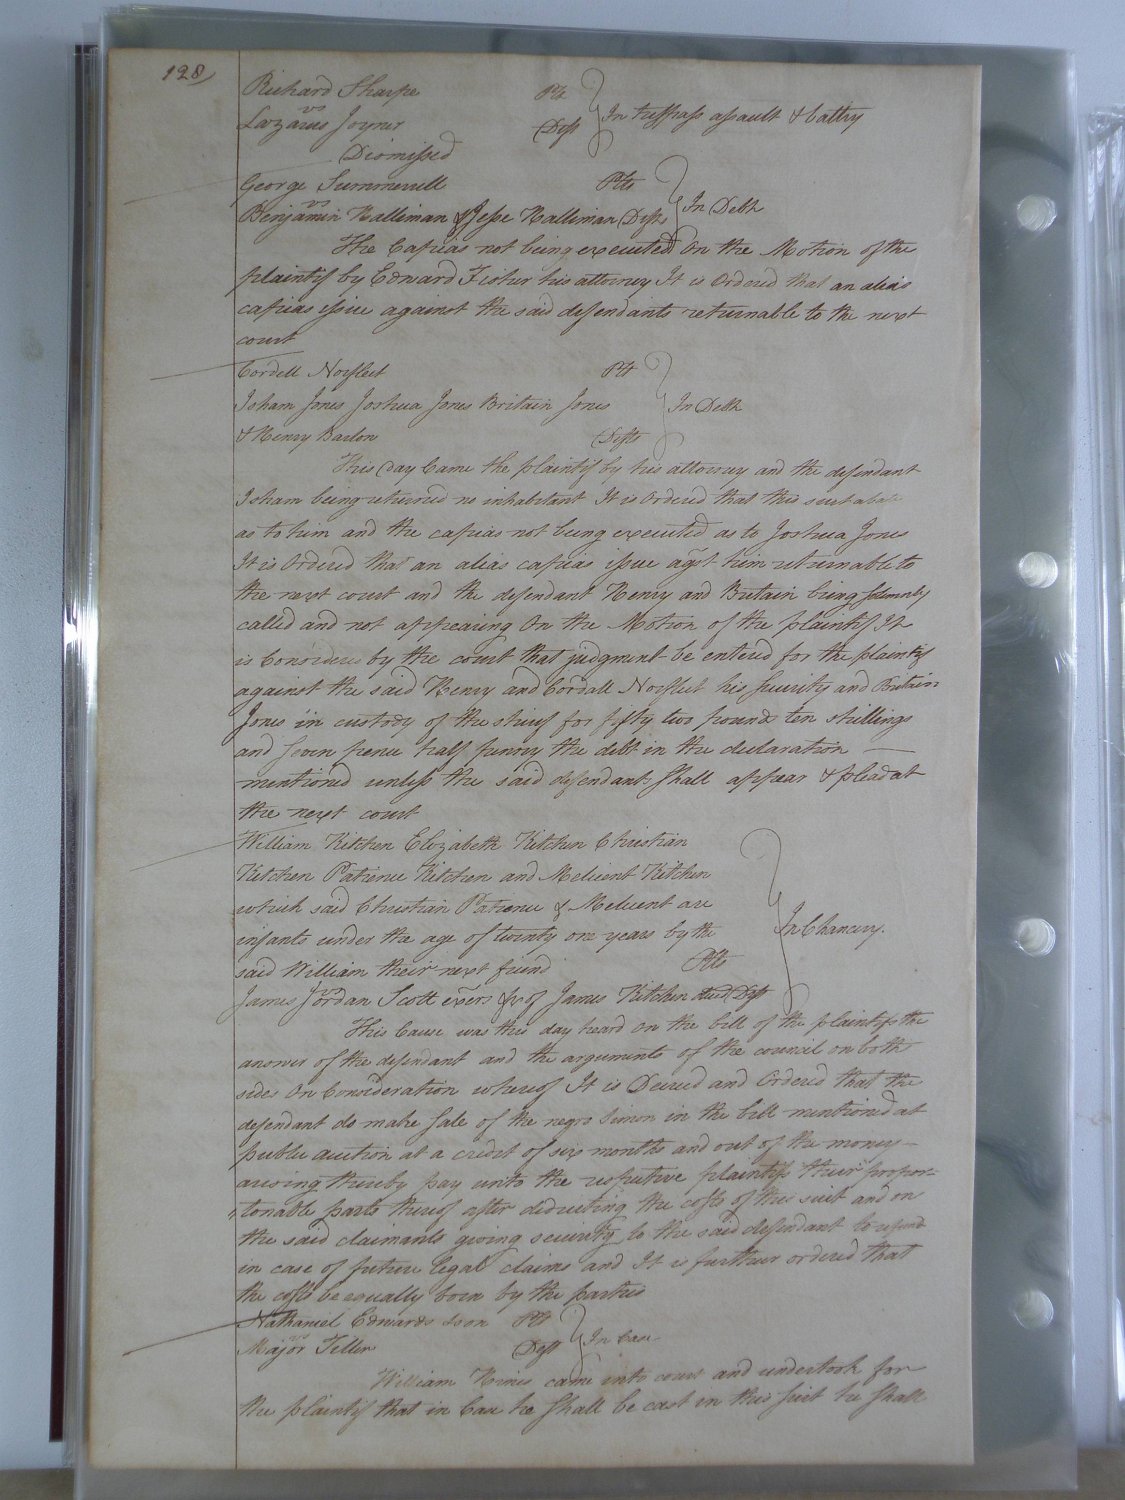 128
Richard Sharpe Plt
vs
In trespass assault & battry
Lazarus Joyner Deft
Dismissed
George Summerell Plts
vs
In Debt
Benjamin Kalliman & Jesse Kalliman Defts
The Capias not being executed On the Motion of the
plaintif by Edward Fisher his attorney It is Ordered that an alias
capias issue against the said defendants returnable to the next
court
Cordell Norfleet Plt
Isham Jones Joshua Jones Britain Jones In Debt
& Henry Barlow Defts
This day Came the plaintif by his attorney and the defendant
Isham being returned no inhabitant It is Ordered that this suit abate
as to him and the capias not being executed as to Joshua Jones
It is Ordered that an alias capias issue agst him returnable to
the next court and the defendant Henry and Britain being solemnly
called and not appearing On the Motion of the plaintif It
is Considered by the court that judgment be entered for the plaintif
against the said Henry and Cordall Norfleet his security and Britain
Jones in custody of the shirif for fifty two pounds ten shillings
and seven pence half penny the debt in the declaration
mentioned unless the said defendants shall appear & plead at
the next court
William Kitchen Elizabeth Kitchen Christian
Kitchen Patience Kitchen and Melicent Kitchen
which said Christian Patience & Melicent are
infants under the age of twenty one years by the In Chancery.
said William their next friend Plts
vs
James Jordan Scott exers &c of James Kitchen decd Deft
This Cause was this day heard on the bill of the plaintifs the
answer of the defendant and the arguments of the council on both
sides On Consideration whereof It is Decreed and Ordered that the
defendant do make sale of the negro Simon in the bill mentioned at
public auction at a credit of six months and out of the money
arising thereby pay unto the respective plaintifs their propor-
tonable parts thereof after deducting the costs of this suit and on
the said claimants giving security to the said defendant to refund
in case of future legal claims and It is further ordered that
the costs be equally born by the parties
Nathaniel Edwards Plt
vs
In Case
Major Teller Deft
William Hines came into court and undertook for
the plaintif that in Case he shall be cast in this suit he shall